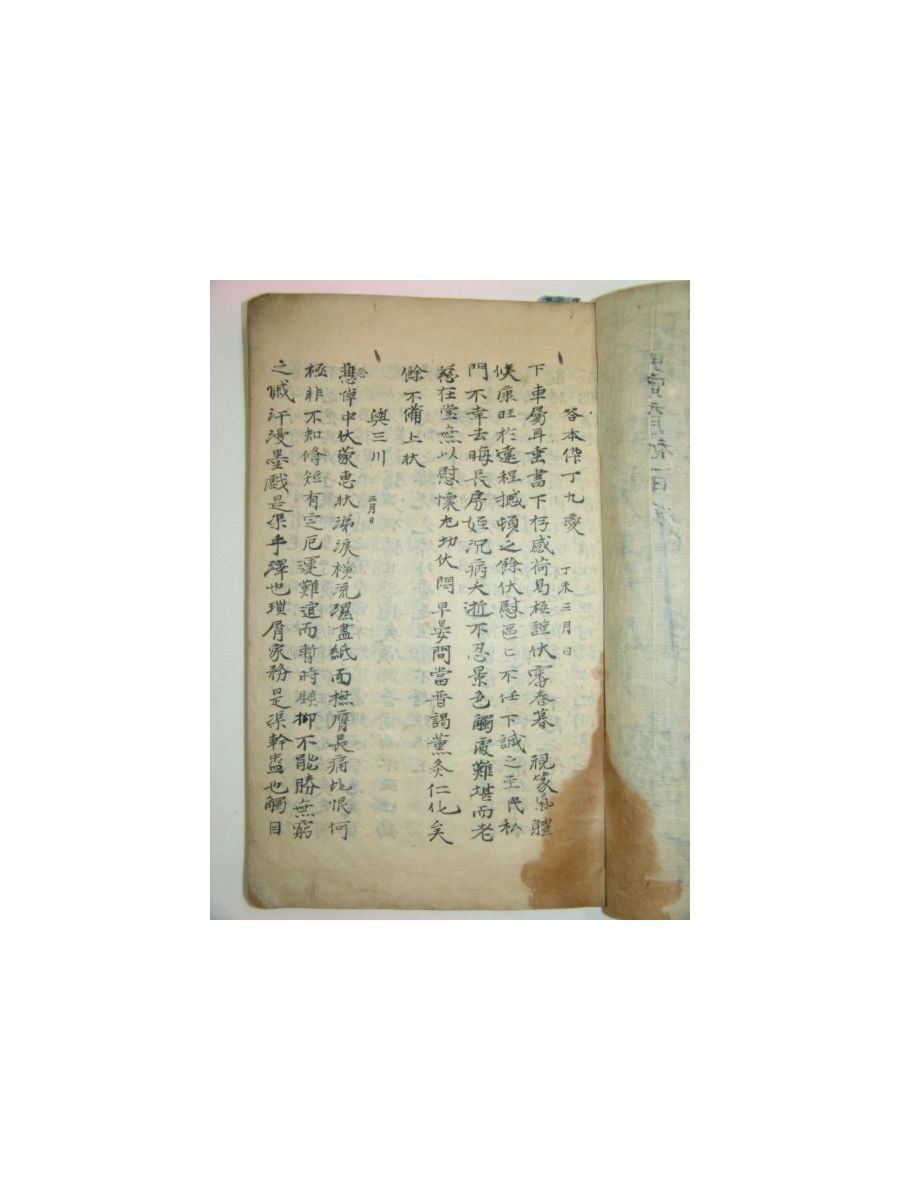 答本倅丁九燮 丁未三月日
下車屬耳垂書下存感荷曷極謹伏審春暮 視篆氣體
候康旺於遠程撼頓之餘伏慰區〻不任下誠之至民私
門不幸去晦長房姪況病夭逝不忍景色觸處難堪而老
慈在堂無以慰懷尤切伏悶早晏間當晉謁薰灸仁化矣
餘不備上狀
與三川 三月日
悲悼中伏蒙惠狀涕淚橫流濕盡紙面撫膺長痛此恨何
極非不知脩短有定厄運難逭而暫時鎮抑不能勝無窮
之慽汗漫墨戲是渠手澤也瑣屑家務是渠幹蠱也觸目